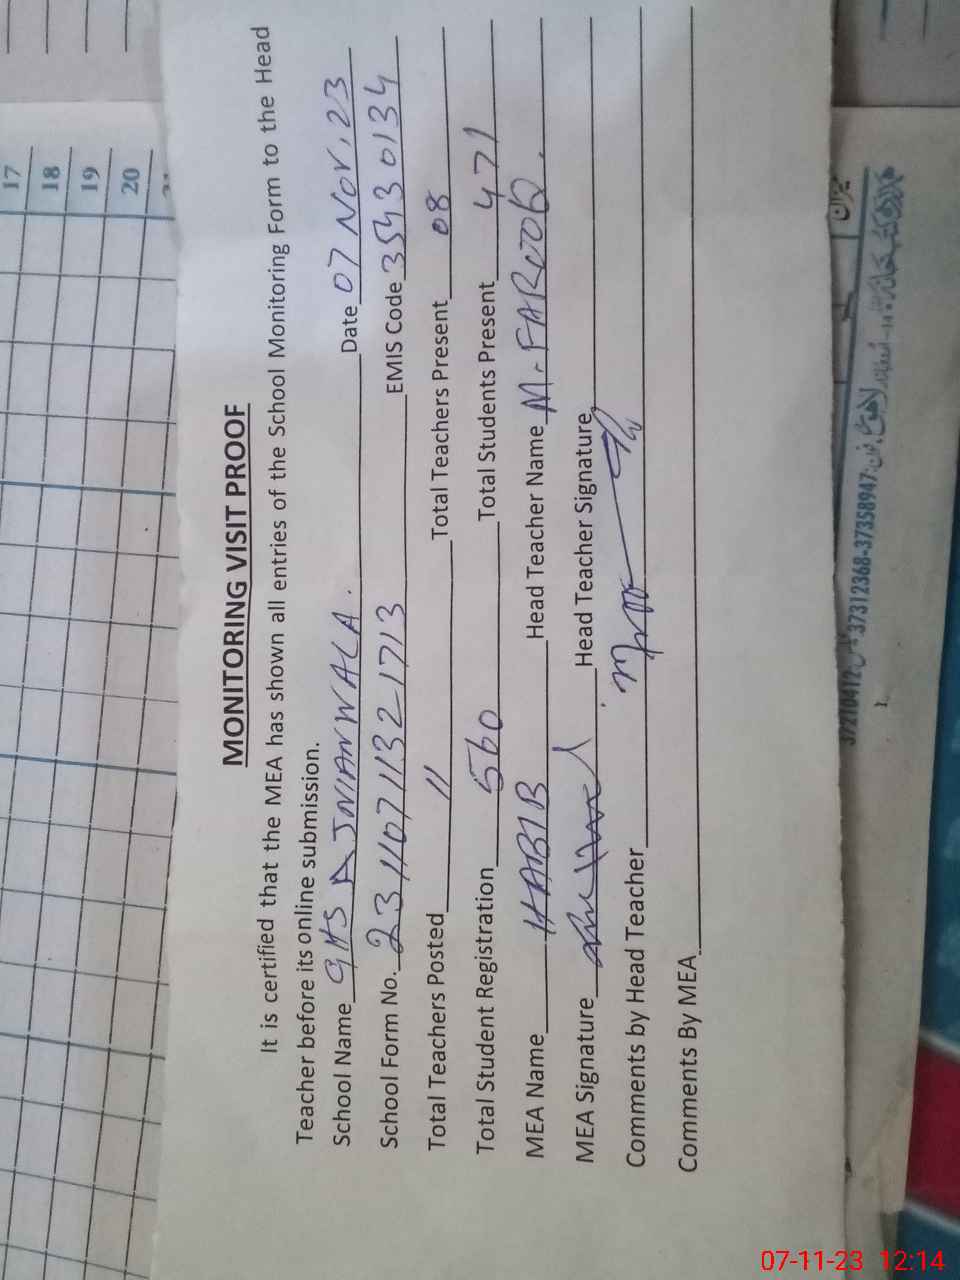 17
18
19
20
MONITORING VISIT PROOF
It is certified that the MEA has shown all entries of the School Monitoring Form to the Head
Teacher before its online submission.
School Name GHS AJNIANWALA. Date 07 Nov, 23
School Form No. 23110711321713 EMIS Code 35430134
Total Teachers Posted 11 Total Teachers Present 08
Total Student Registration 560 Total Students Present 471
MEA Name HABIB Head Teacher Name M. FAROOQ.
MEA Signature Head Teacher Signature
Comments by Head Teacher
Comments By MEA
37210412 37312368-37358947
07-11-23 12:14